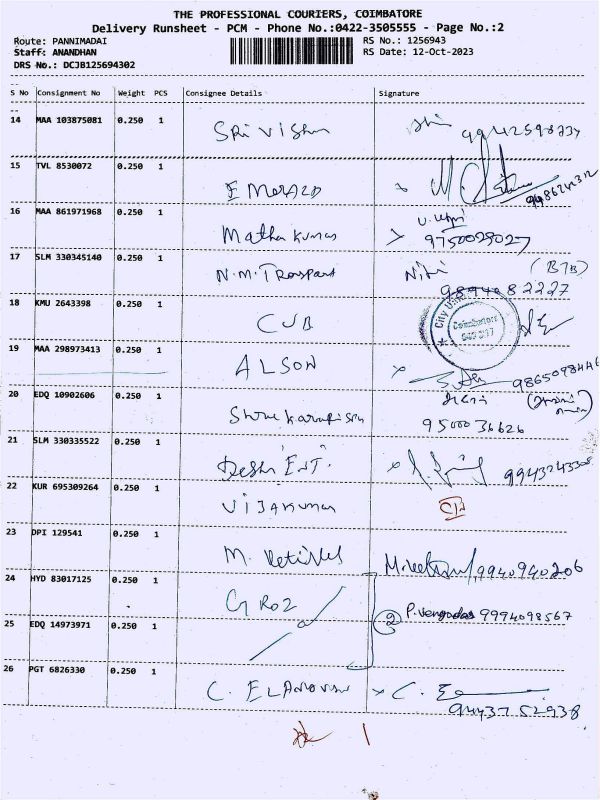 THE PROFESSIONAL COURIERS, COIMBATORE
Delivery Runsheet - PCM - Phone No.:0422-3505555 - Page No.:2
Route: PANNIMADAI
RS No.: 1256943
Staff: ANANDHAN
RS Date: 12-Oct-2023
DRS No.: DCJB125694302
S No Consignment No Weight PCS Consignee Details Signature
14 MAA 103875081 0.250 1 Sri Vishnu
15 TVL 8530072 0.250 1 EMERALD
16 MAA 861971968 0.250 1 Mathan Kumar 9750029027
17 SLM 330345140 0.250 1 N.M. Transport (B7B)
18 KMU 2643398 0.250 1 CUB City Coimbatore
19 MAA 298973413 0.250 1 ALSON
20 EDQ 10902606 0.250 1 9500036626
21 SLM 330335522 0.250 1 ENT.
22 KUR 695309264 0.250 1 Vijakumar
23 DPI 129541 0.250 1 M. Vetrivel 9940940206
24 HYD 83017125 0.250 1 GROZ
2 P. Vengadas 9994098567
25 EDQ 14973971 0.250 1
26 PGT 6826330 0.250 1 C. ELANGOVAN C.
9443752938